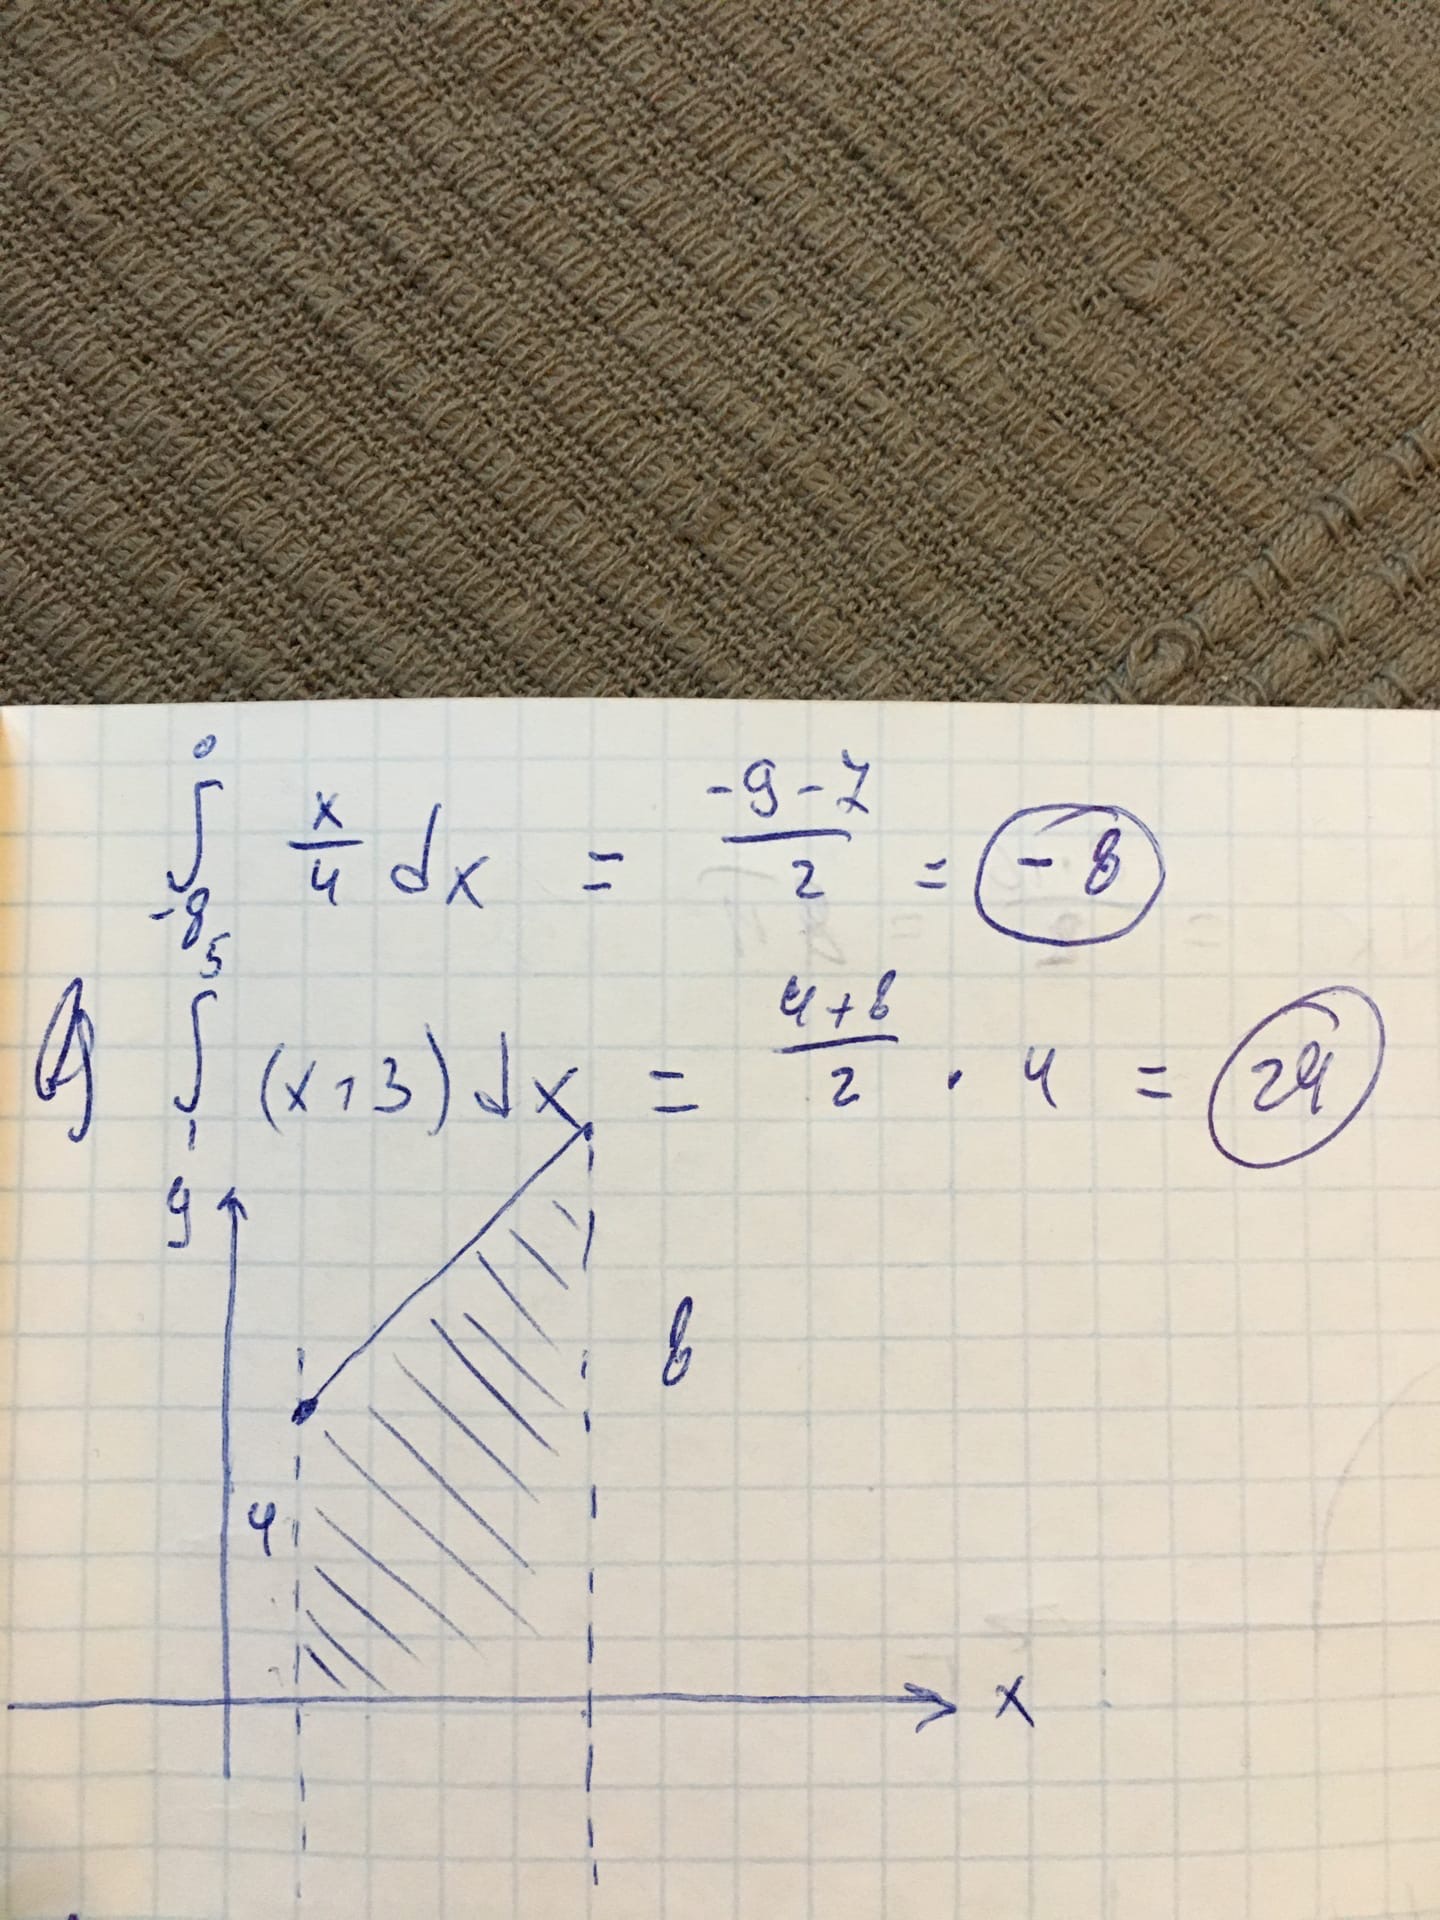 ∫_{-8}^{0} x/4 dx = (-9-7)/2 = -8
∫_{1}^{5} (x+3) dx = (4+8)/2 · 4 = 24
y
8
4
x